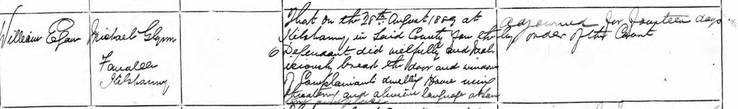 William Egan
Michael Glynn
Fanaleen
Kilshanny
6
That on the 28th August 1889 at
Kilshanny in said County
Defendant did wilfully and mali
ciously break the door and window
of Complainants dwelling House using
threatening and abusive language at same
adjourned for fourteen days
by order of the Court